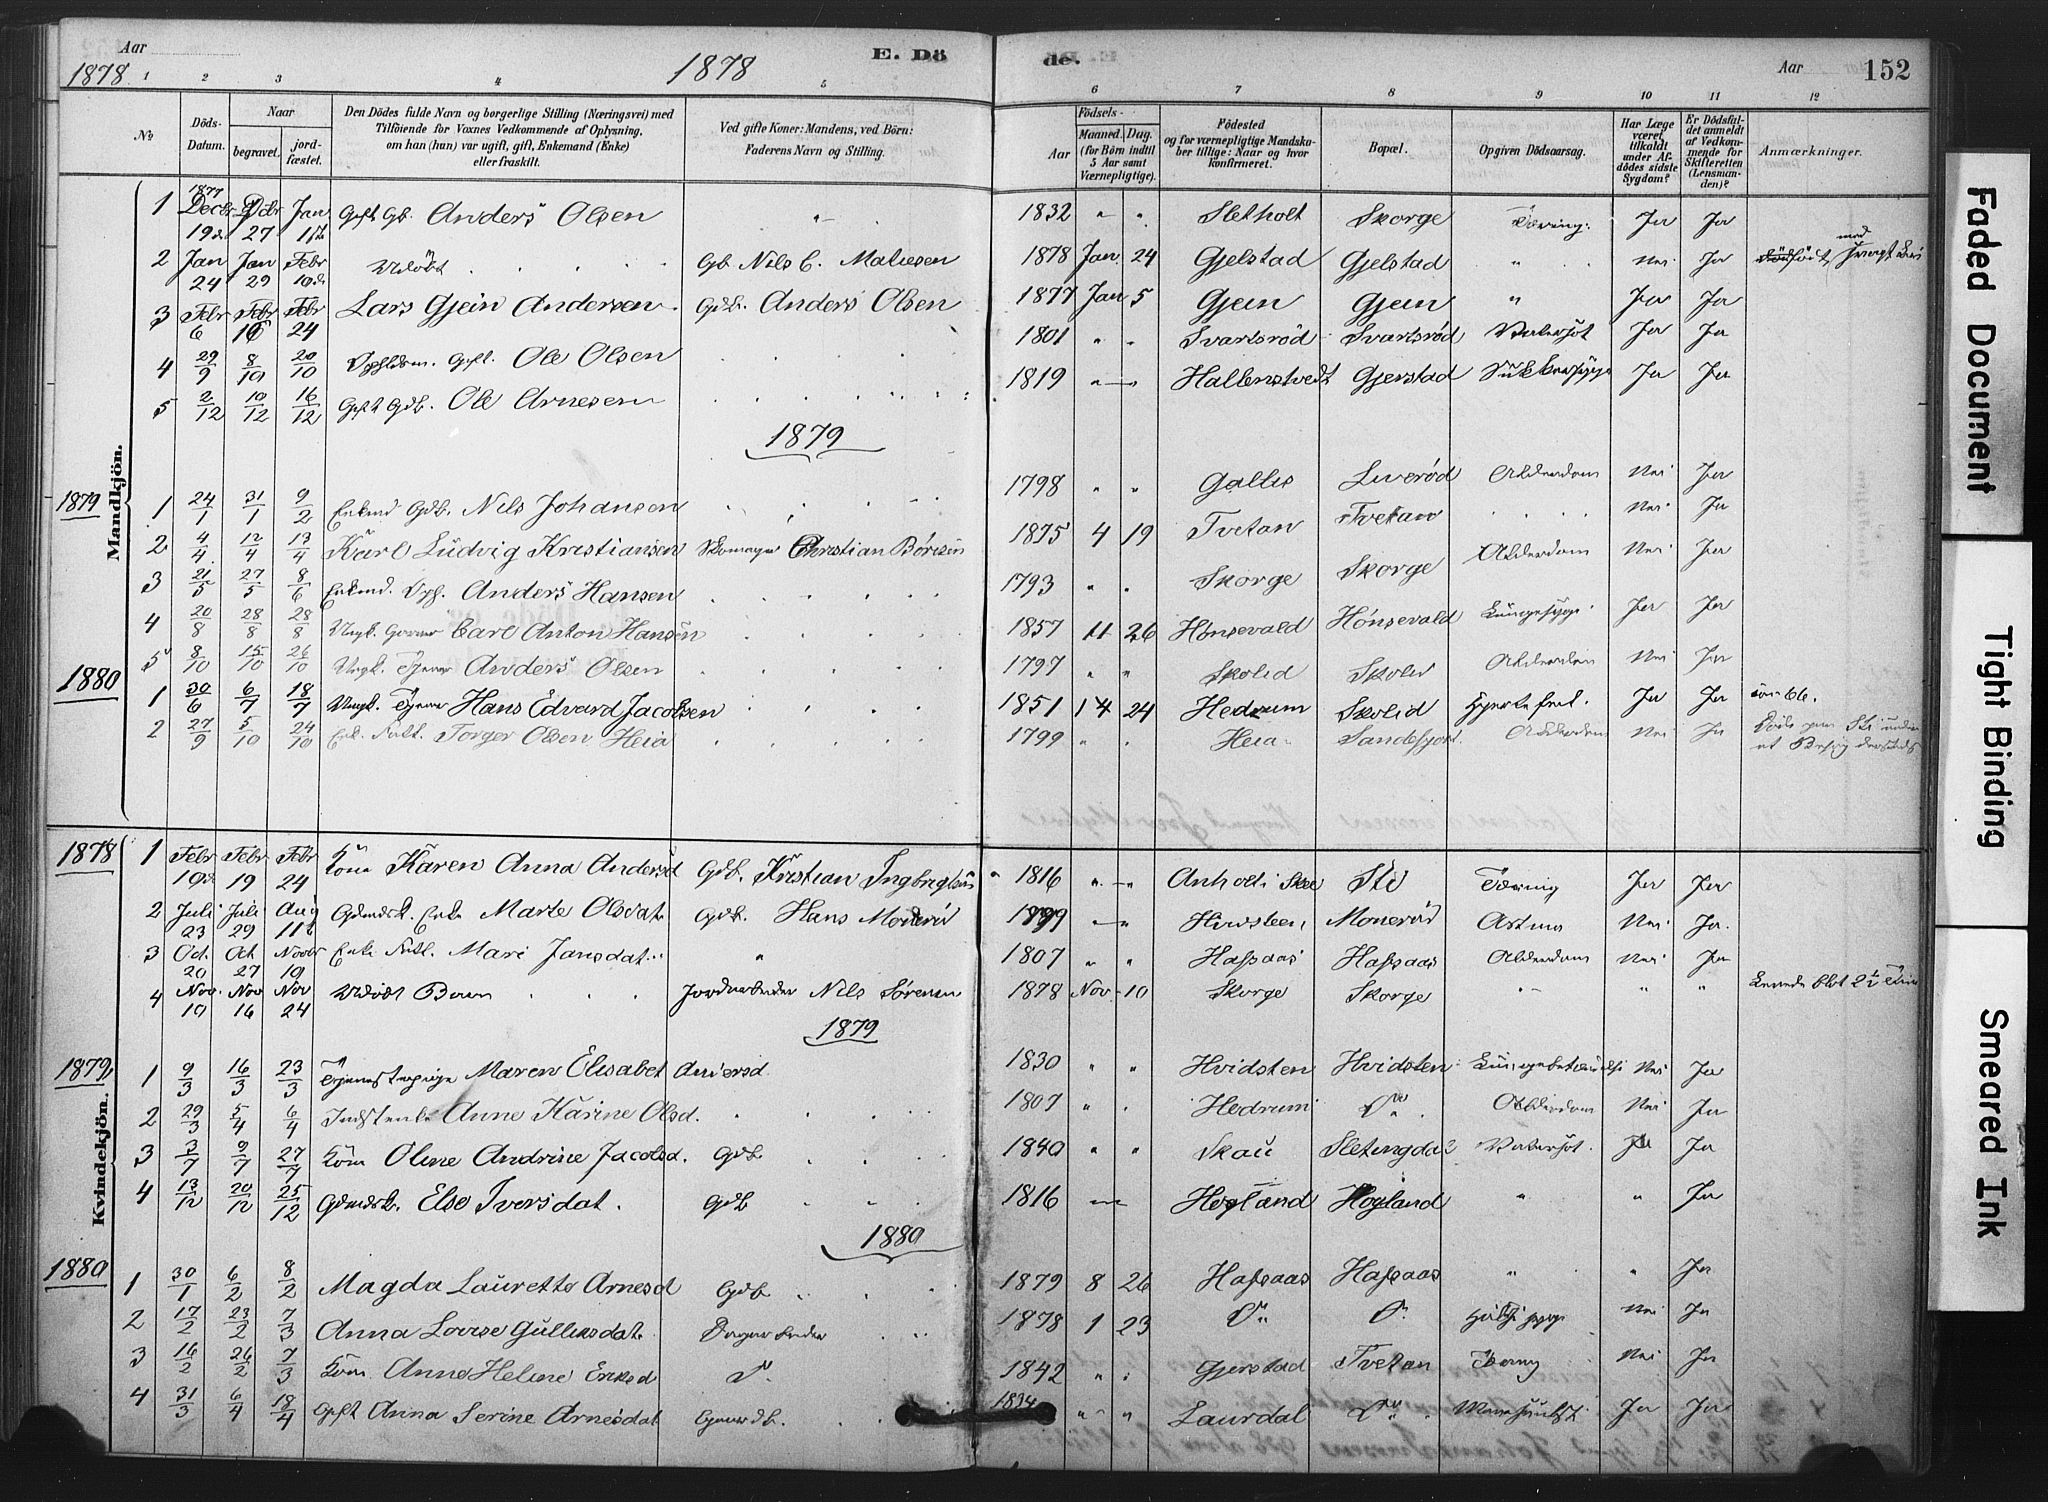 Aar
1878
1878
E. Dö
de.
Aar
152
1 2 3 4 5 6 7 8 9 10 11 12
No
Döds-Datum.
Naar
begravet.
jord-fæstet.
Den Dödes fulde Navn og borgerlige Stilling (Næringsvei) med
Tilföiende for Voxnes Vedkommende af Oplysning,
om han (hun) var ugift, gift, Enkemand (Enke)
eller fraskilt.
Ved gifte Koner: Mandens, ved Börn:
Faderens Navn og Stilling.
Födsels-
Aar
Maaned. Dag.
(for Börn indtil
5 Aar samt
Værnepligtige).
Födested
og for værnepligtige Mandska-
ber tillige: Naar og hvor
konfirmeret.
Bopæl.
Opgiven Dödsaarsag.
Har Læge
været
tilkaldt
under Af-
dödes sidste
Sygdom?
Er Dödsfal-
det anmeldt
af Vedkom-
mende for
Skifteretten
(Lensman-
den)?
Anmærkninger.
Mandkjön.
1 1877 Decbr 19de Dcbr 27 Jan Gift Gb. Anders Olsen 1832 Sletholt Skorge Tæring Ja Ja
2 Jan 24 Jan 29 Febr 10de Udöbt Gb Nils C. 1878 Jan 24 Gjelstad Gjelstad Nei Ja
3 Febr 6 Febr Febr 24 Lars Gjein Andersen Gdb. Anders Olsen 1877 Jan 5 Gjein Gjein Ja Ja
4 29/9 8/10 20/10 Gift. Ole Olsen 1801 Svartsröd Svartsröd Vatersot Ja Ja
5 2/12 10/12 16/12 Gift Gdb. Ole Arnesen 1819 Hallenstvedt Gjerstad Ja Ja
1879
1879
1 24/1 31/1 9/2 Enkemd Gdb. Nils Johansen 1798 Gallis Alderdom Nei Ja
2 4/4 12/4 13/4 Karl Ludvig Kristiansen Skomager Christian 1875 4 19 Tvetan Tvetan Nei Ja
3 21/5 27/5 8/6 Enkemd. Anders Hansen 1793 Skorge Skorge Alderdom Nei Ja
4 20/8 28/8 28/8 Ungk. Carl Anton Hansen 1857 11 26 Hönsevald Hönsevald Lungesyge Ja Ja
5 8/10 15/10 26/10 Ungk. Tjener Anders Olsen 1797 Skolid Skolid Nei Ja
1880
1 30/6 6/7 18/7 Ungk. Tjener Hans Edvard Jacobsen 1851 14 24 Hedrum Skolid Hjertefeil. Ja Ja
2 27/9 5/10 24/10 Enk. Torger Olsen Heia 1799 Heia Sandefjord. Alderdom Nei Ja
Kvindekjön.
1878
1 Febr 19de Febr 19 Febr 24 Kone Karen Anna Andersd Gdb. Kristian Ingbrigtsen 1816 Anholt i Skee Sti Tæring Ja Ja
2 Juli 23 Juli 29 Aug 11te Enke Marte Olsdat. Gdb. Hans Moneröd Moneröd Astma Nei Ja.
3 Oct. 20 Oct 27 Novbr 10 Enke Mari Jansdat. 1807 Hafsaas Hafsaas Alderdom Nei Ja
4 Nov. 10 Nov 16 Nov 24 Udöbt Barn Jordarbeider Nils Sörensen 1878 Nov 10 Skorge Skorge Levede blot 2½ Time
1879
1879
1 9/3 16/3 23/3 Tjenestepige Maren Elisabet Andersd 1830 Hvidsten Hvidsten Lungebetændelse Nei Ja
2 29/3 5/4 6/4 Anne Karine Olsd. 1807 Hedrum Do Alderdom Nei Ja
3 3/7 9/7 27/7 Kone Oline Andrine Jacobsd. Gdb 1840 Skau Vatersot. Ja Ja
4 13/12 20/12 25/12 Else Iversdat. Gdb 1816 Hogland Hogland Ja
1880
1880
1 30/1 6/2 8/2 Magda Laurette Arnesd Gdb 1879 8 26 Hafsaas Hafsaas Ja
2 17/2 23/2 7/3 Anna Lovise Gulliksdat. 1878 1 23 Do Do Nei Ja
3 16/2 26/2 7/3 Kone Anne Helene Eriksd Do 1842 Gjerstad Tvetan Tæring Nei Ja
4 31/3 6/4 18/4 Gift Anna Serine Arnesdat 1834 Laurdal Do Ja Ja
Faded Document
Tight Binding
Smeared Ink